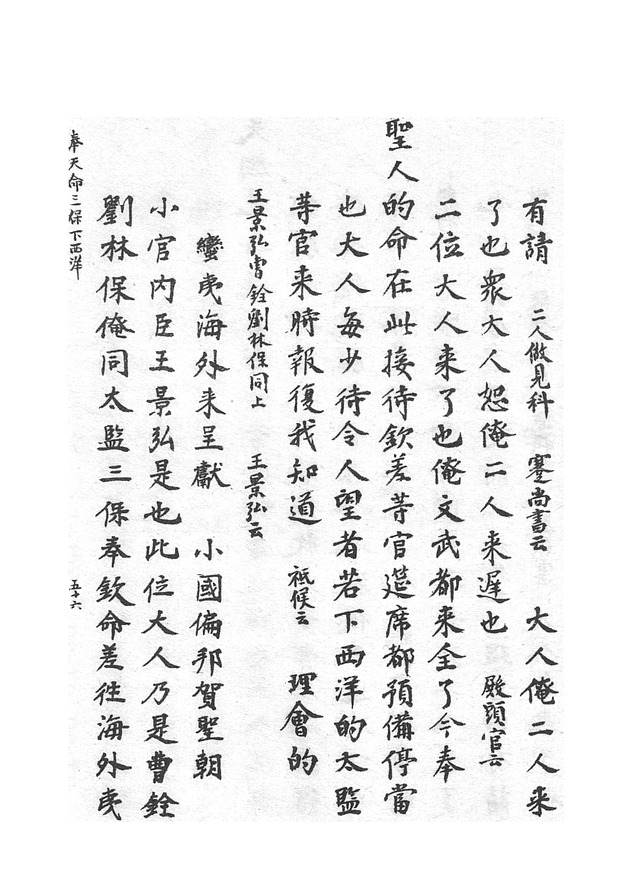 有請 二人做見科 蹇尚書云 大人俺二人来
了也衆大人恕俺二人来遲也 殿頭官云
二位大人来了也俺文武都来全了今奉
聖人的命在此接待欽差等官筵席都預備停當
也大人每少待令人望者若下西洋的太監
等官来時報復我知道 祗候云 理會的
王景弘曹銓劉林保同上 王景弘云
蠻夷海外来呈獻 小國偏邦賀聖朝
小官内臣王景弘是也此位大人乃是曹銓
劉林保俺同太監三保奉欽命差徃海外夷
奉天命三保下西洋 五十六